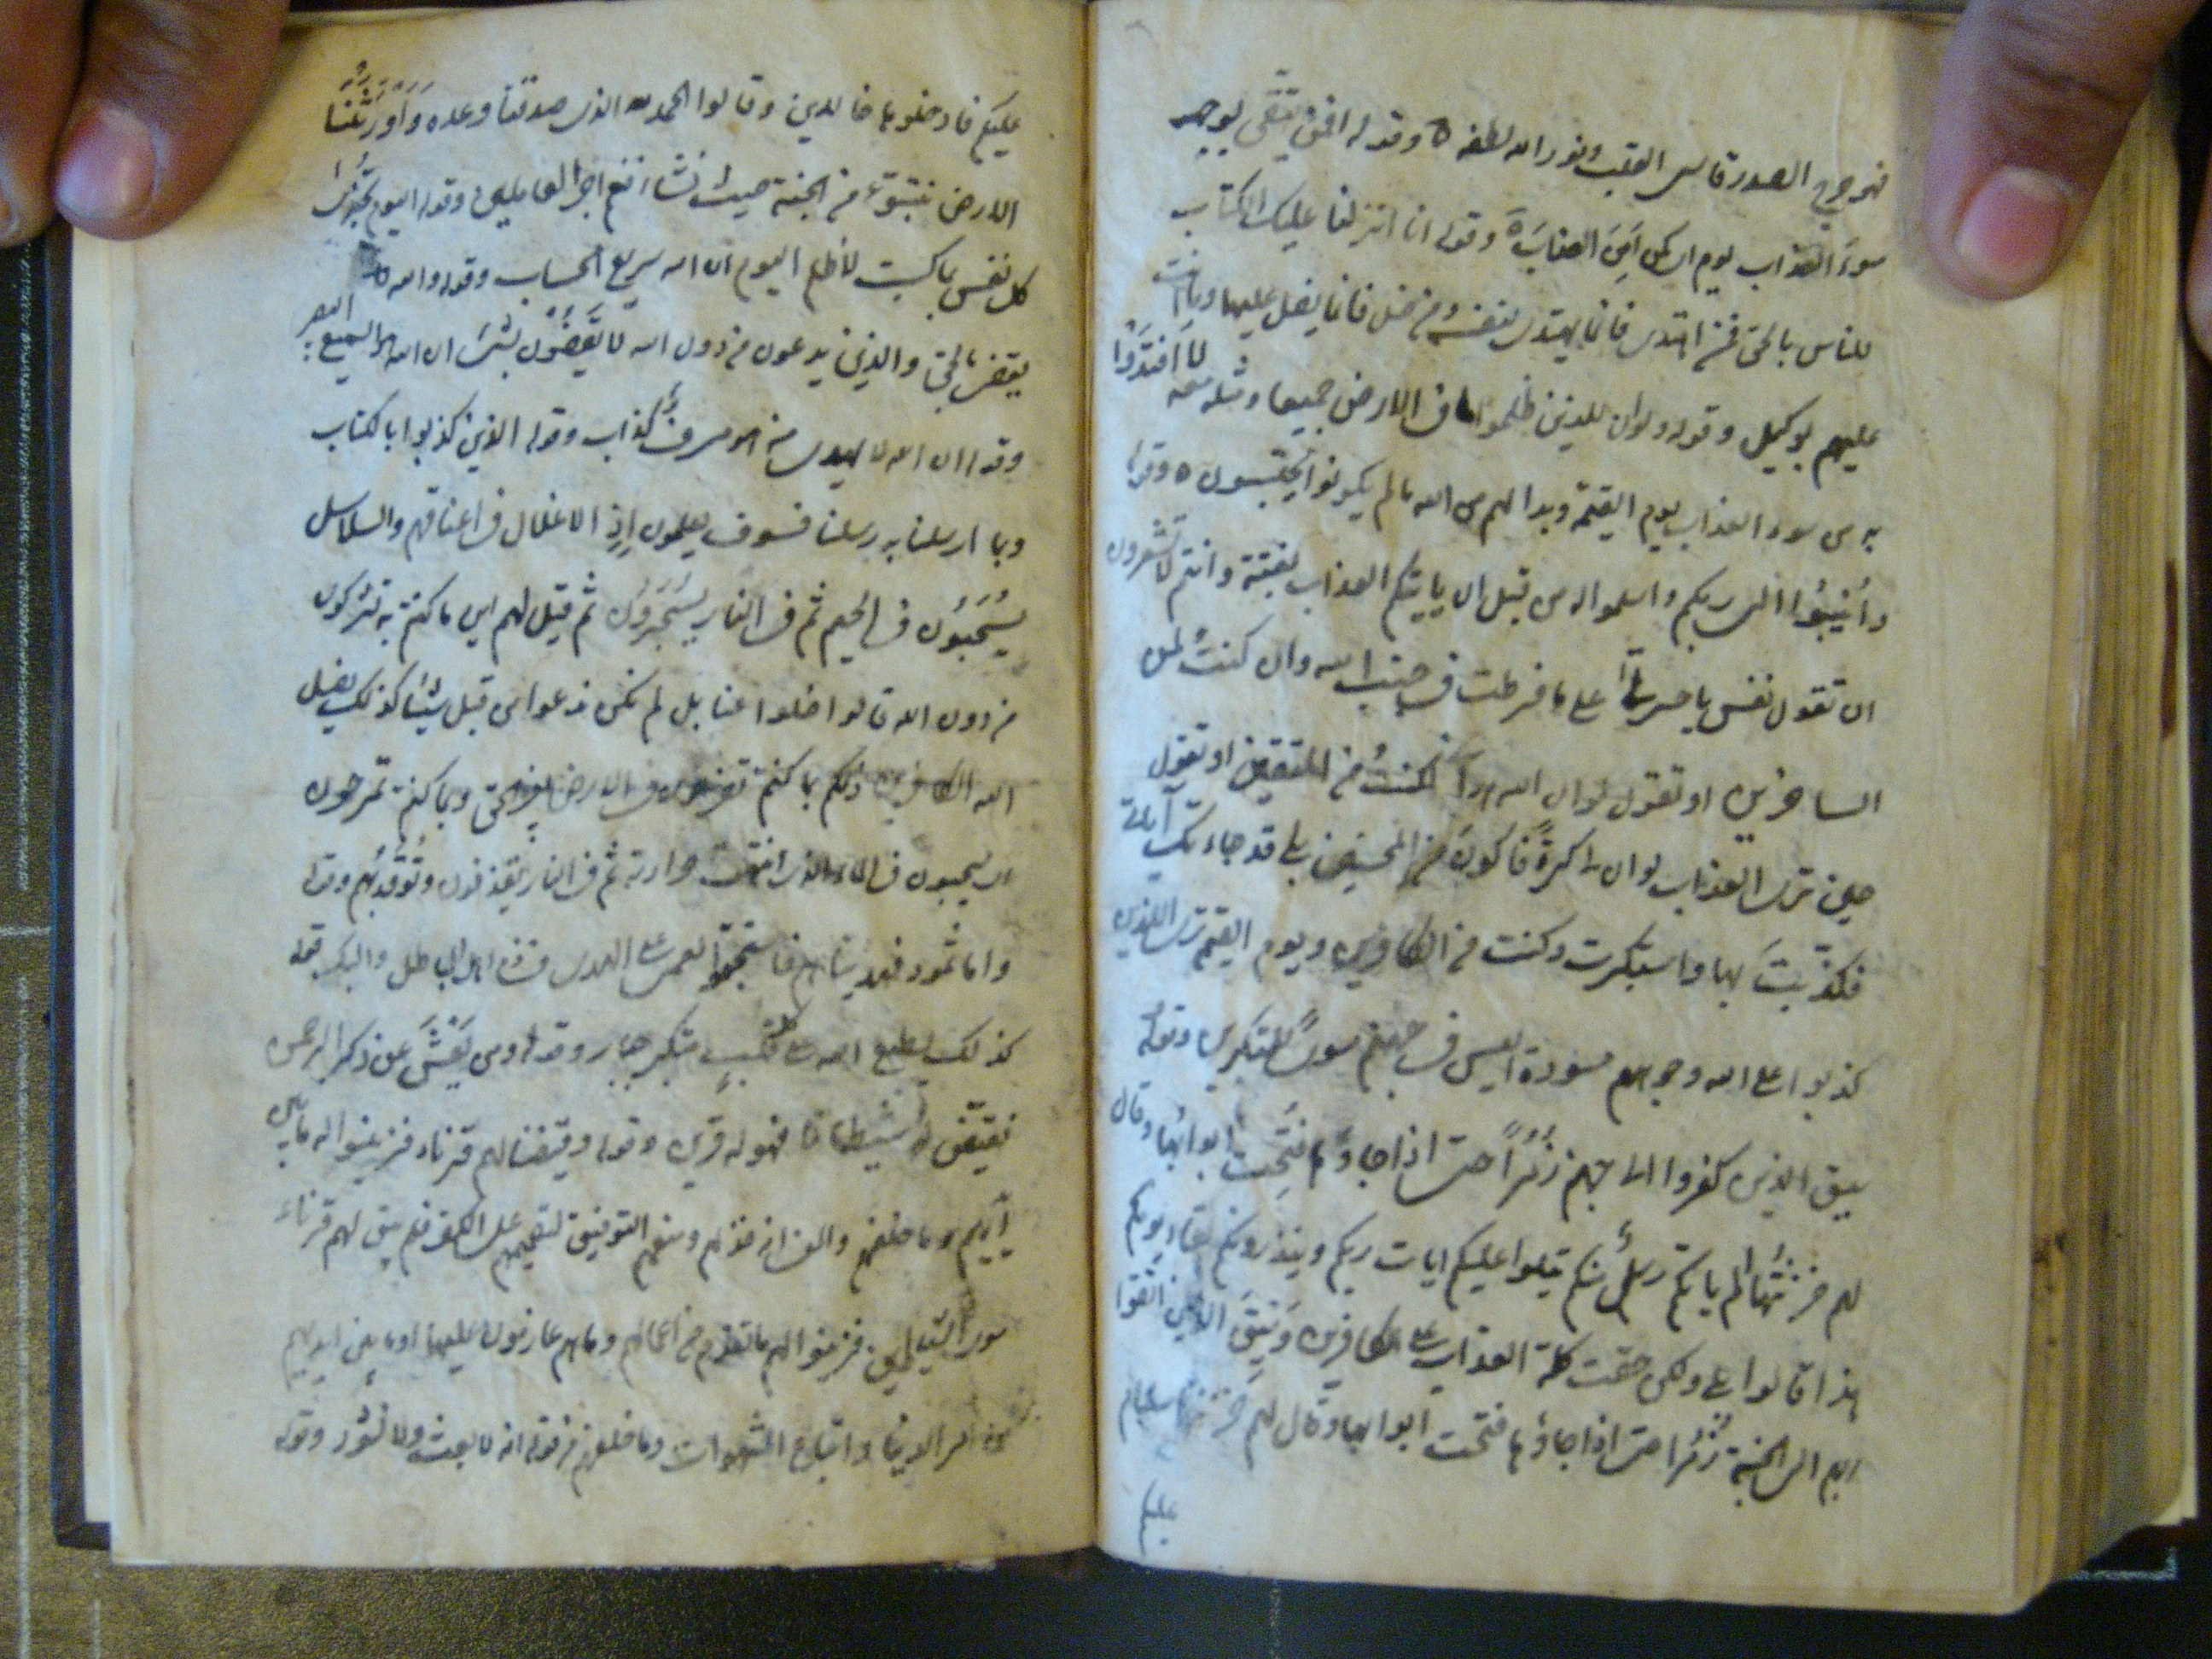 فهو حرج الصدر قاسى القلب ونور الله لطفه ه وقوله افمن يتقى بوجهه
سوء العذاب يوم القيمة وقوله انا انزلنا عليك الكتاب
للناس بالحق فمن اهتدى فانما يهتدى لنفسه ومن ضل فانما يضل عليها وما انت
عليهم بوكيل وقوله ولو ان للذين ظلموا ما فى الارض جميعا ومثله معه لافتدوا
به من سوء العذاب يوم القيمة وبدا لهم من الله ما لم يكونوا يحتسبون ه وقوله
وانيبوا الى ربكم واسلموا له من قبل ان ياتيكم العذاب بغتة وانتم لا تشعرون
ان تقول نفس يا حسرتى على ما فرطت فى جنب الله وان كنت لمن
الساخرين او تقول لو ان الله هدانى لكنت من المتقين او تقول
حين ترى العذاب لو ان لى كرة فاكون من المحسنين بلى قد جاءتك آياتى
فكذبت بها واستكبرت وكنت من الكافرين ويوم القيمة ترى الذين
كذبوا على الله وجوههم مسودة اليس فى جهنم مثوى للمتكبرين وقوله
سيق الذين كفروا الى جهنم زمرا حتى اذا جاؤها فتحت ابوابها وقال
لهم خزنتها الم ياتكم رسل منكم يتلوا عليكم ايات ربكم وينذرونكم لقاء يومكم
هذا قالوا بلى ولكن حقت كلمة العذاب على الكافرين وسيق الذين اتقوا
ربهم الى الجنة زمرا حتى اذا جاؤها فتحت ابوابها وقال لهم خزنتها سلام
عليكم
عليكم فادخلوها خالدين وقالوا الحمد لله الذى صدقنا وعده وَاَوْرَثَنَا
الارض نتبوّء من الجنة حيث نشاء فنعم اجر العاملين وقوله اليوم تُجْزٰى
كل نفس بما كسبت لا ظلم اليوم ان الله سريع الحساب وقوله والله
يقضى بالحق والذين يدعون من دون الله لا يقضون بشئ ان الله هو السميع البصير
وقوله ان الله لا يهدى من هو مسرف كذاب وقوله الذين كذبوا بالكتاب
وبما ارسلنا به رسلنا فسوف يعلمون اِذِ الاغلال فى اعناقهم والسلاسل
يُسْحَبُون فى الحميم ثم فى النار يسجرون ثم قيل لهم اين ما كنتم به تشركون
من دون الله قالوا ضلوا عنا بل لم نكن ندعوا من قبل شيئا كذلك يضل
الله الكافرين ذلكم بما كنتم تفرحون فى الارض بغير الحق وبما كنتم تمرحون
اى يسحبون فى الماء الذى انتهت حرارته ثم فى النار يقذفون وتُوقَدُ بهم وقوله
واما ثمود فهديناهم فاستحبّوا العمى على الهدى
كذلك يطبع الله على كل قلب متكبر جبار وقوله ومن يَعْشُ عن ذكر الرحمن
نقيّض له شيطانا فهو له قرين وقوله وقيضنا لهم قرناء فزينوا لهم ما بين
ايديهم وما خلفهم والمراد خذلهم ومنعهم التوفيق لتصميمهم على الكفر فلم يبق لهم قرناء
سوى الشياطين فزينوا لهم ما تقدم من اعمالهم وما هم عازمون عليها او ما بين ايديهم
من امر الدنيا واتباع الشهوات وما خلفهم من قوله ان لا بعث ولا نشور وقوله